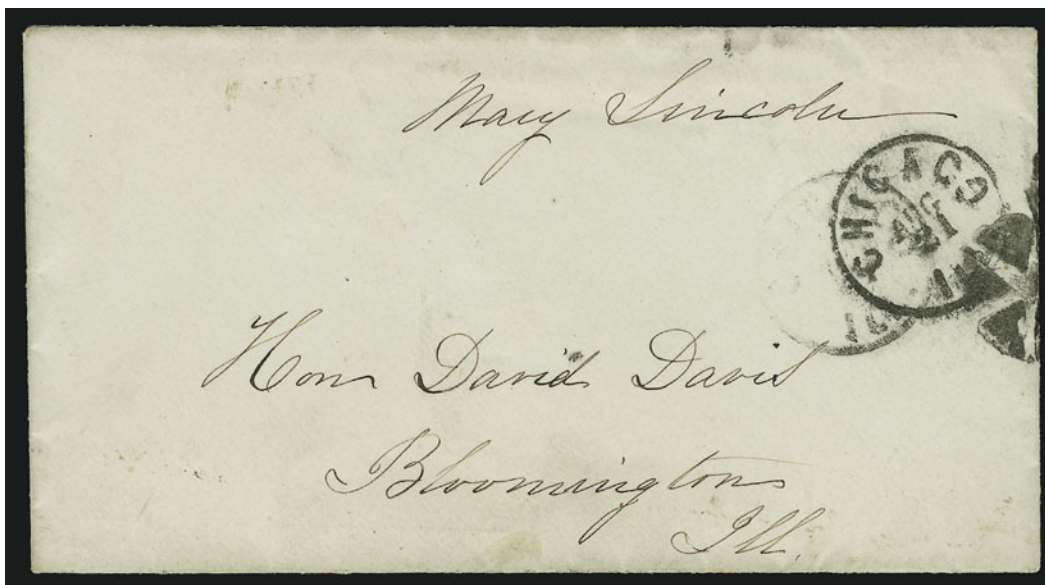 Mary Lincoln
CHICAGO
AUG
21
Hon David Davis
Bloomington
Ill.